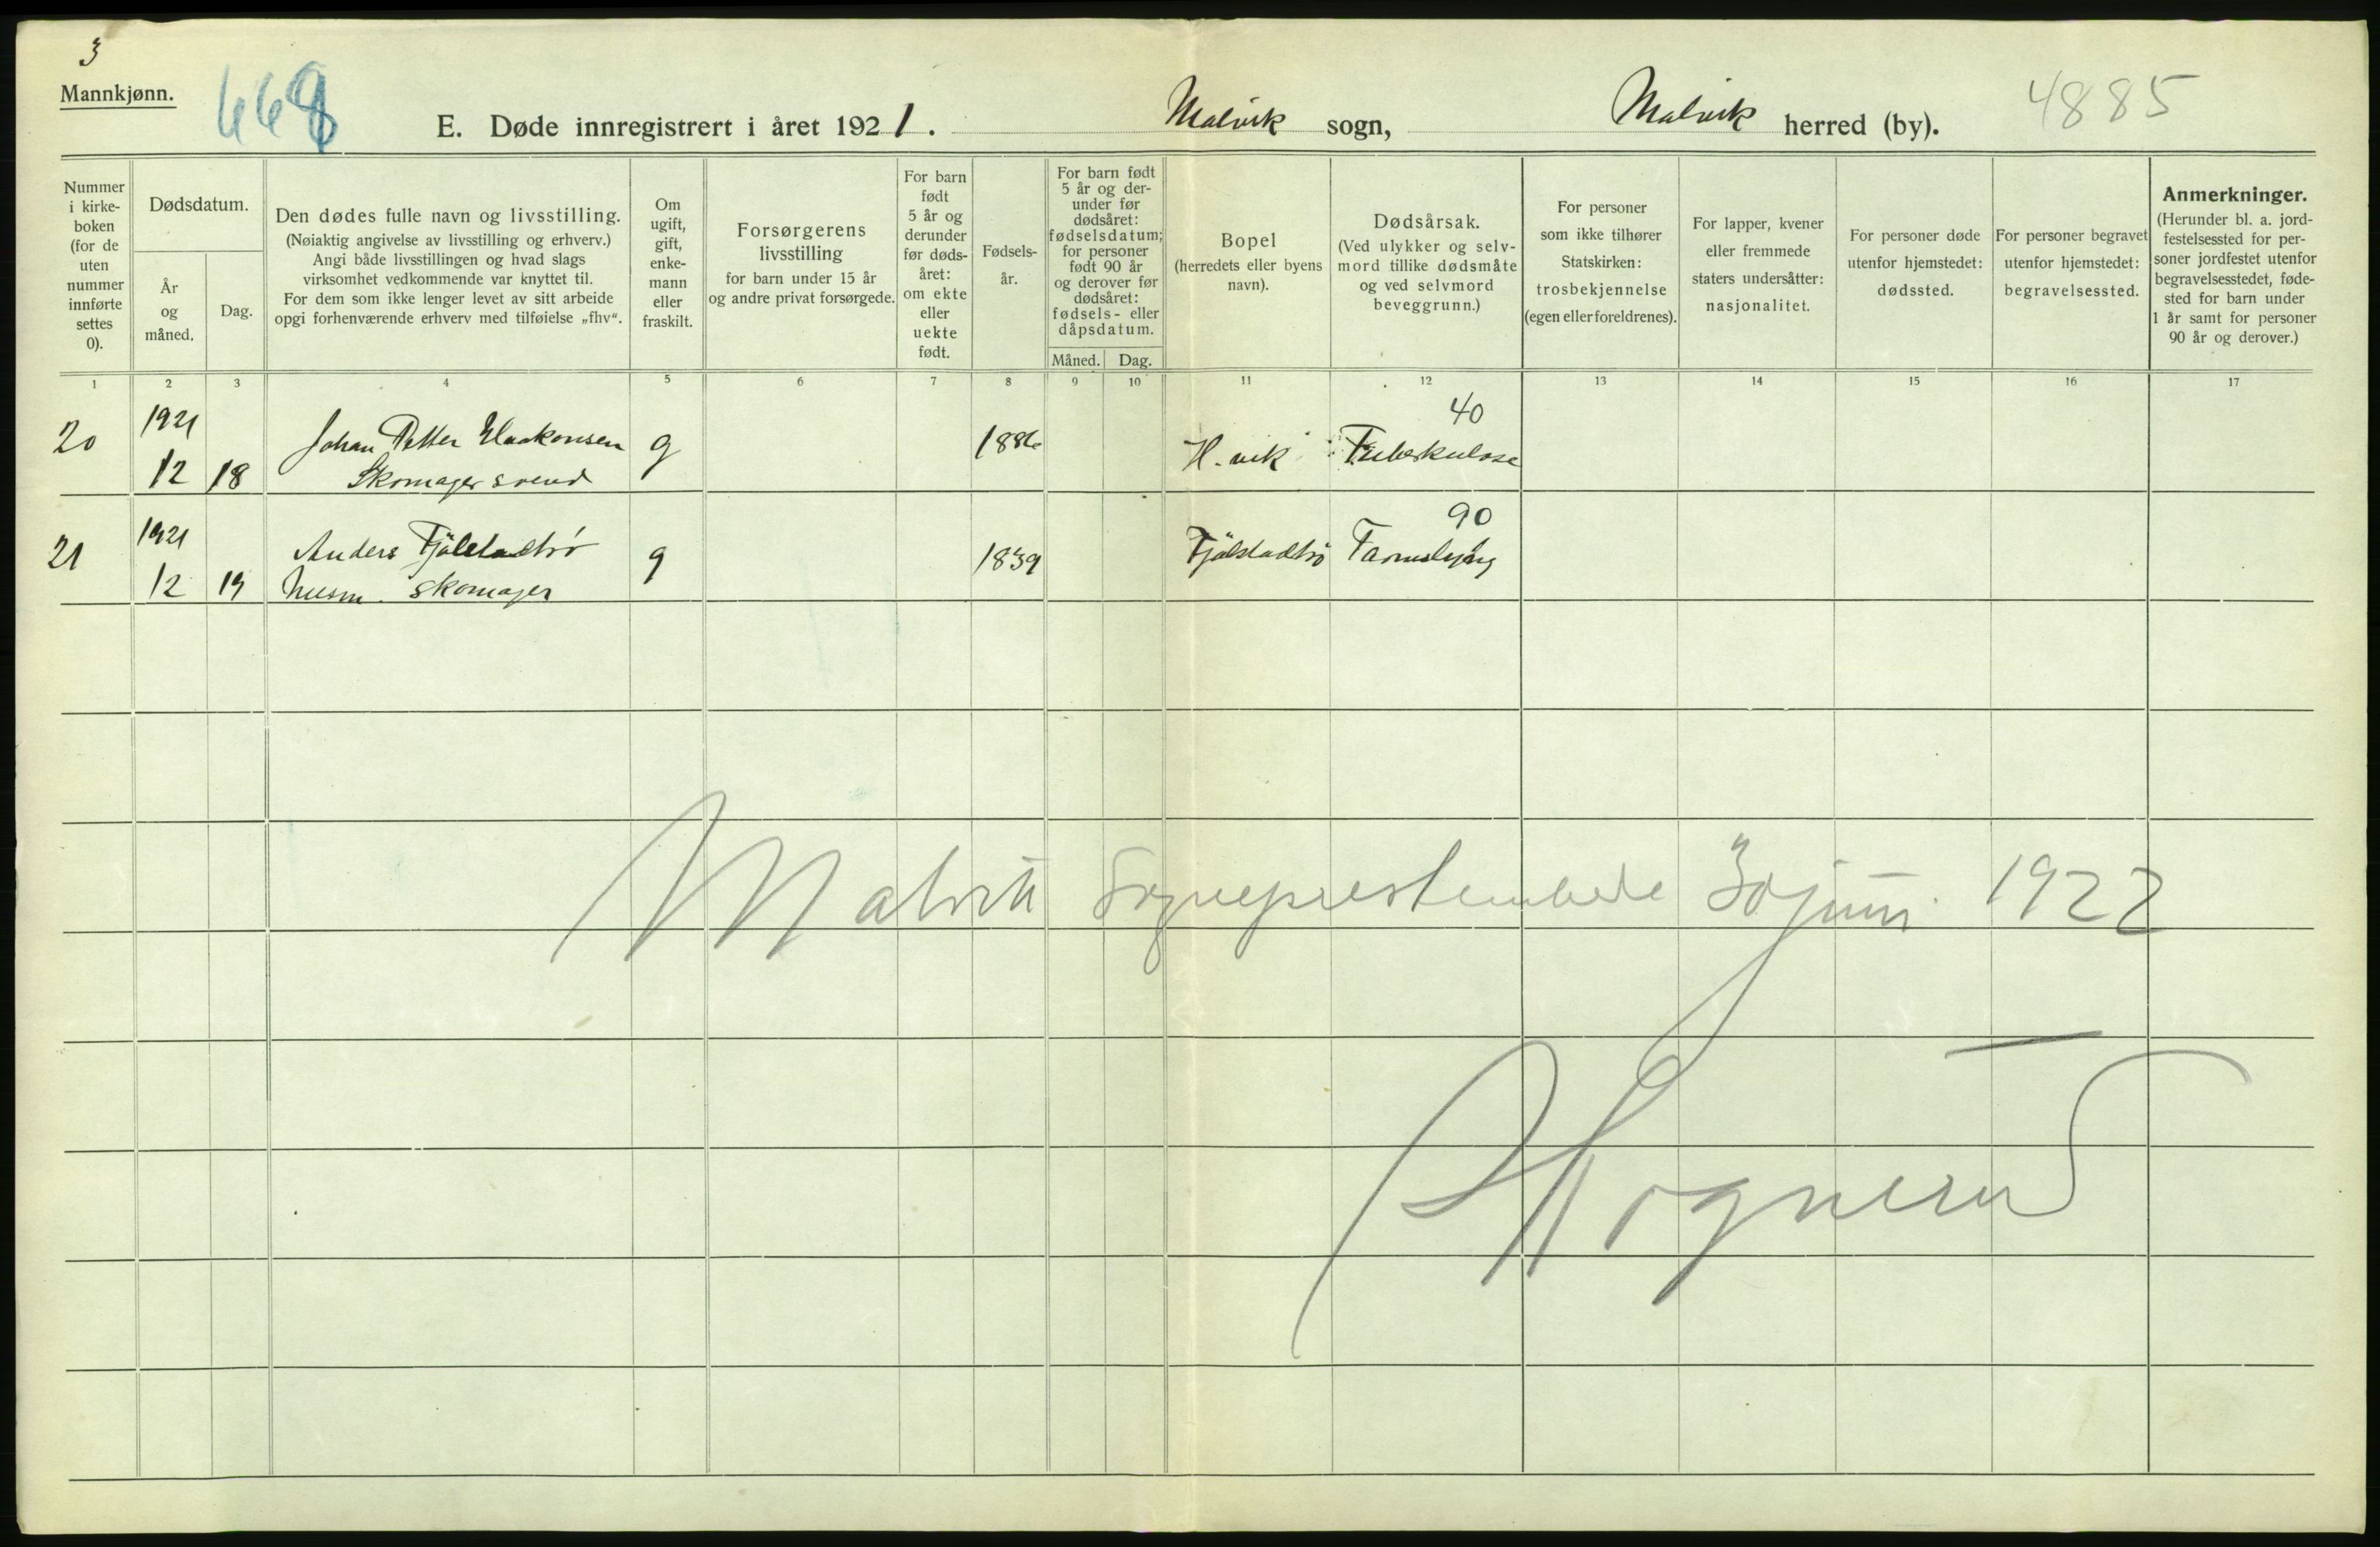 3
Mannkjønn.
668
E. Døde innregistrert i året 1921.
Malvik sogn,
Malvik herred (by).
4885
Nummer
i kirke-
boken
(for de
uten
nummer
innførte
settes
0).
Dødsdatum.
År
og
måned.
Dag.
Den dødes fulle navn og livsstilling.
(Nøiaktig angivelse av livsstilling og erhverv.)
Angi både livsstillingen og hvad slags
virksomhet vedkommende var knyttet til.
For dem som ikke lenger levet av sitt arbeide
opgi forhenværende erhverv med tilføielse „fhv“.
Om
ugift,
gift,
enke-
mann
eller
fraskilt.
Forsørgerens
livsstilling
for barn under 15 år
og andre privat forsørgede.
For barn
født
5 år og
derunder
før døds-
året:
om ekte
eller
uekte
født.
Fødsels-
år.
For barn født
5 år og der-
under før
dødsåret:
fødselsdatum;
for personer
født 90 år
og derover før
dødsåret:
fødsels- eller
dåpsdatum.
Måned.
Dag.
Bopel
(herredets eller byens
navn).
Dødsårsak.
(Ved ulykker og selv-
mord tillike dødsmåte
og ved selvmord
beveggrunn.)
For personer
som ikke tilhører
Statskirken:
trosbekjennelse
(egen eller foreldrenes).
For lapper, kvener
eller fremmede
staters undersåtter:
nasjonalitet.
For personer døde
utenfor hjemstedet:
dødssted.
For personer begravet
utenfor hjemstedet:
begravelsessted.
Anmerkninger.
(Herunder bl. a. jord-
festelsessted for per-
soner jordfestet utenfor
begravelsesstedet, føde-
sted for barn under
1 år samt for personer
90 år og derover.)
1 2 3 4 5 6 7 8 9 10 11 12 13 14 15 16 17
20 1921 12 18 Johan Petter Haakonsen g 1886 H.vik 40 Tuberkulose
Skomagersvend
21 1921 12 19 Anders Fjölstadtrø g 1839 Fjölstadtrø 90
Husm. skomager
Malvik Sogneprestembede 30 juni 1922